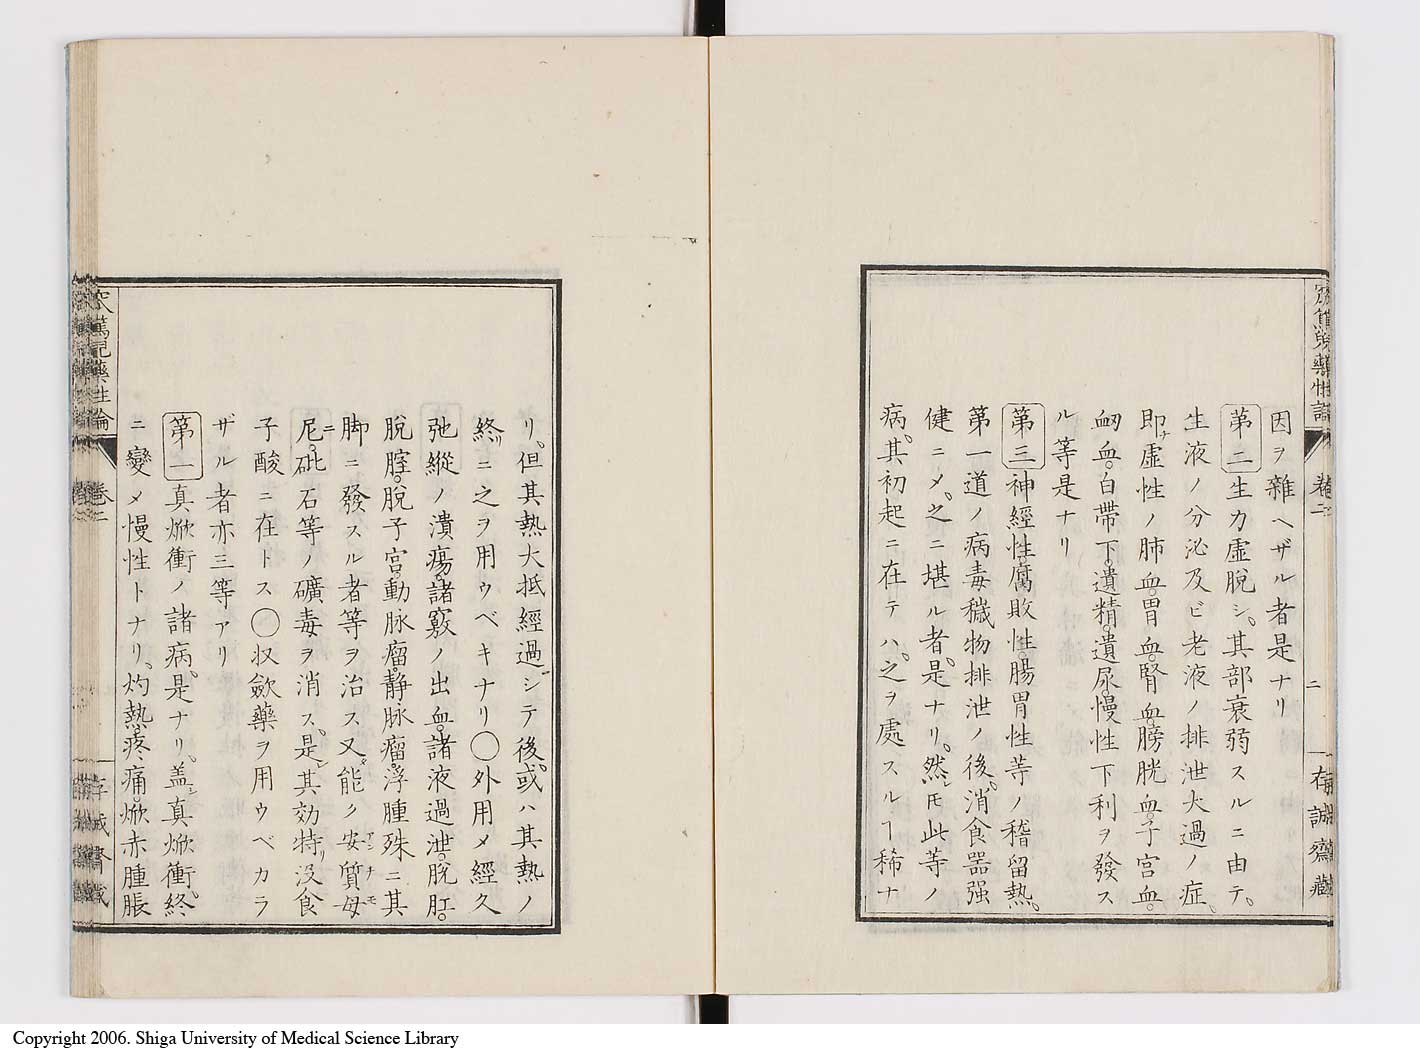 因ヲ雜ヘザル者是ナリ
第二生力虛脫シ。其部衰弱スルニ由テ。
生液ノ分泌及ビ老液ノ排泄大過ノ症。
即チ虛性ノ肺血。胃血。腎血。膀胱血。子宮血。
衂血。白帶下。遺精。遺尿。慢性下利ヲ發ス
ル等是ナリ
第三神經性。腐敗性。腸胃性等ノ稽留熱。
第一道ノ病毒穢物排泄ノ後。消食噐强
健ニメ。之ニ堪ル者。是ナリ。然レモ此等ノ
病。其初起ニ在テハ。之ヲ處スルヿ稀ナ
卷二
二
存誠齋藏
リ。但其熱大抵經過シテ後。或ハ其熱ノ
終リニ之ヲ用ウベキナリ〇外用メ經久
弛縱ノ潰瘍。諸竅ノ出血。諸液過泄。脫肛。
脫膣。脫子宮。動脉瘤。靜脉瘤。浮腫殊ニ其
脚ニ發スル者等ヲ治ス又能ク安質母
尼。砒石等ノ礦毒ヲ消ス。是其効特リ沒食
子酸ニ在トス〇収斂藥ヲ用ウベカラ
ザル者亦三等アリ
第一真焮衝ノ諸病。是ナリ。盖シ真焮衝。終
ニ變メ慢性トナリ。灼熱。疼痛。焮赤腫脹
藥性論
卷二
Copyright 2006. Shiga University of Medical Science Library